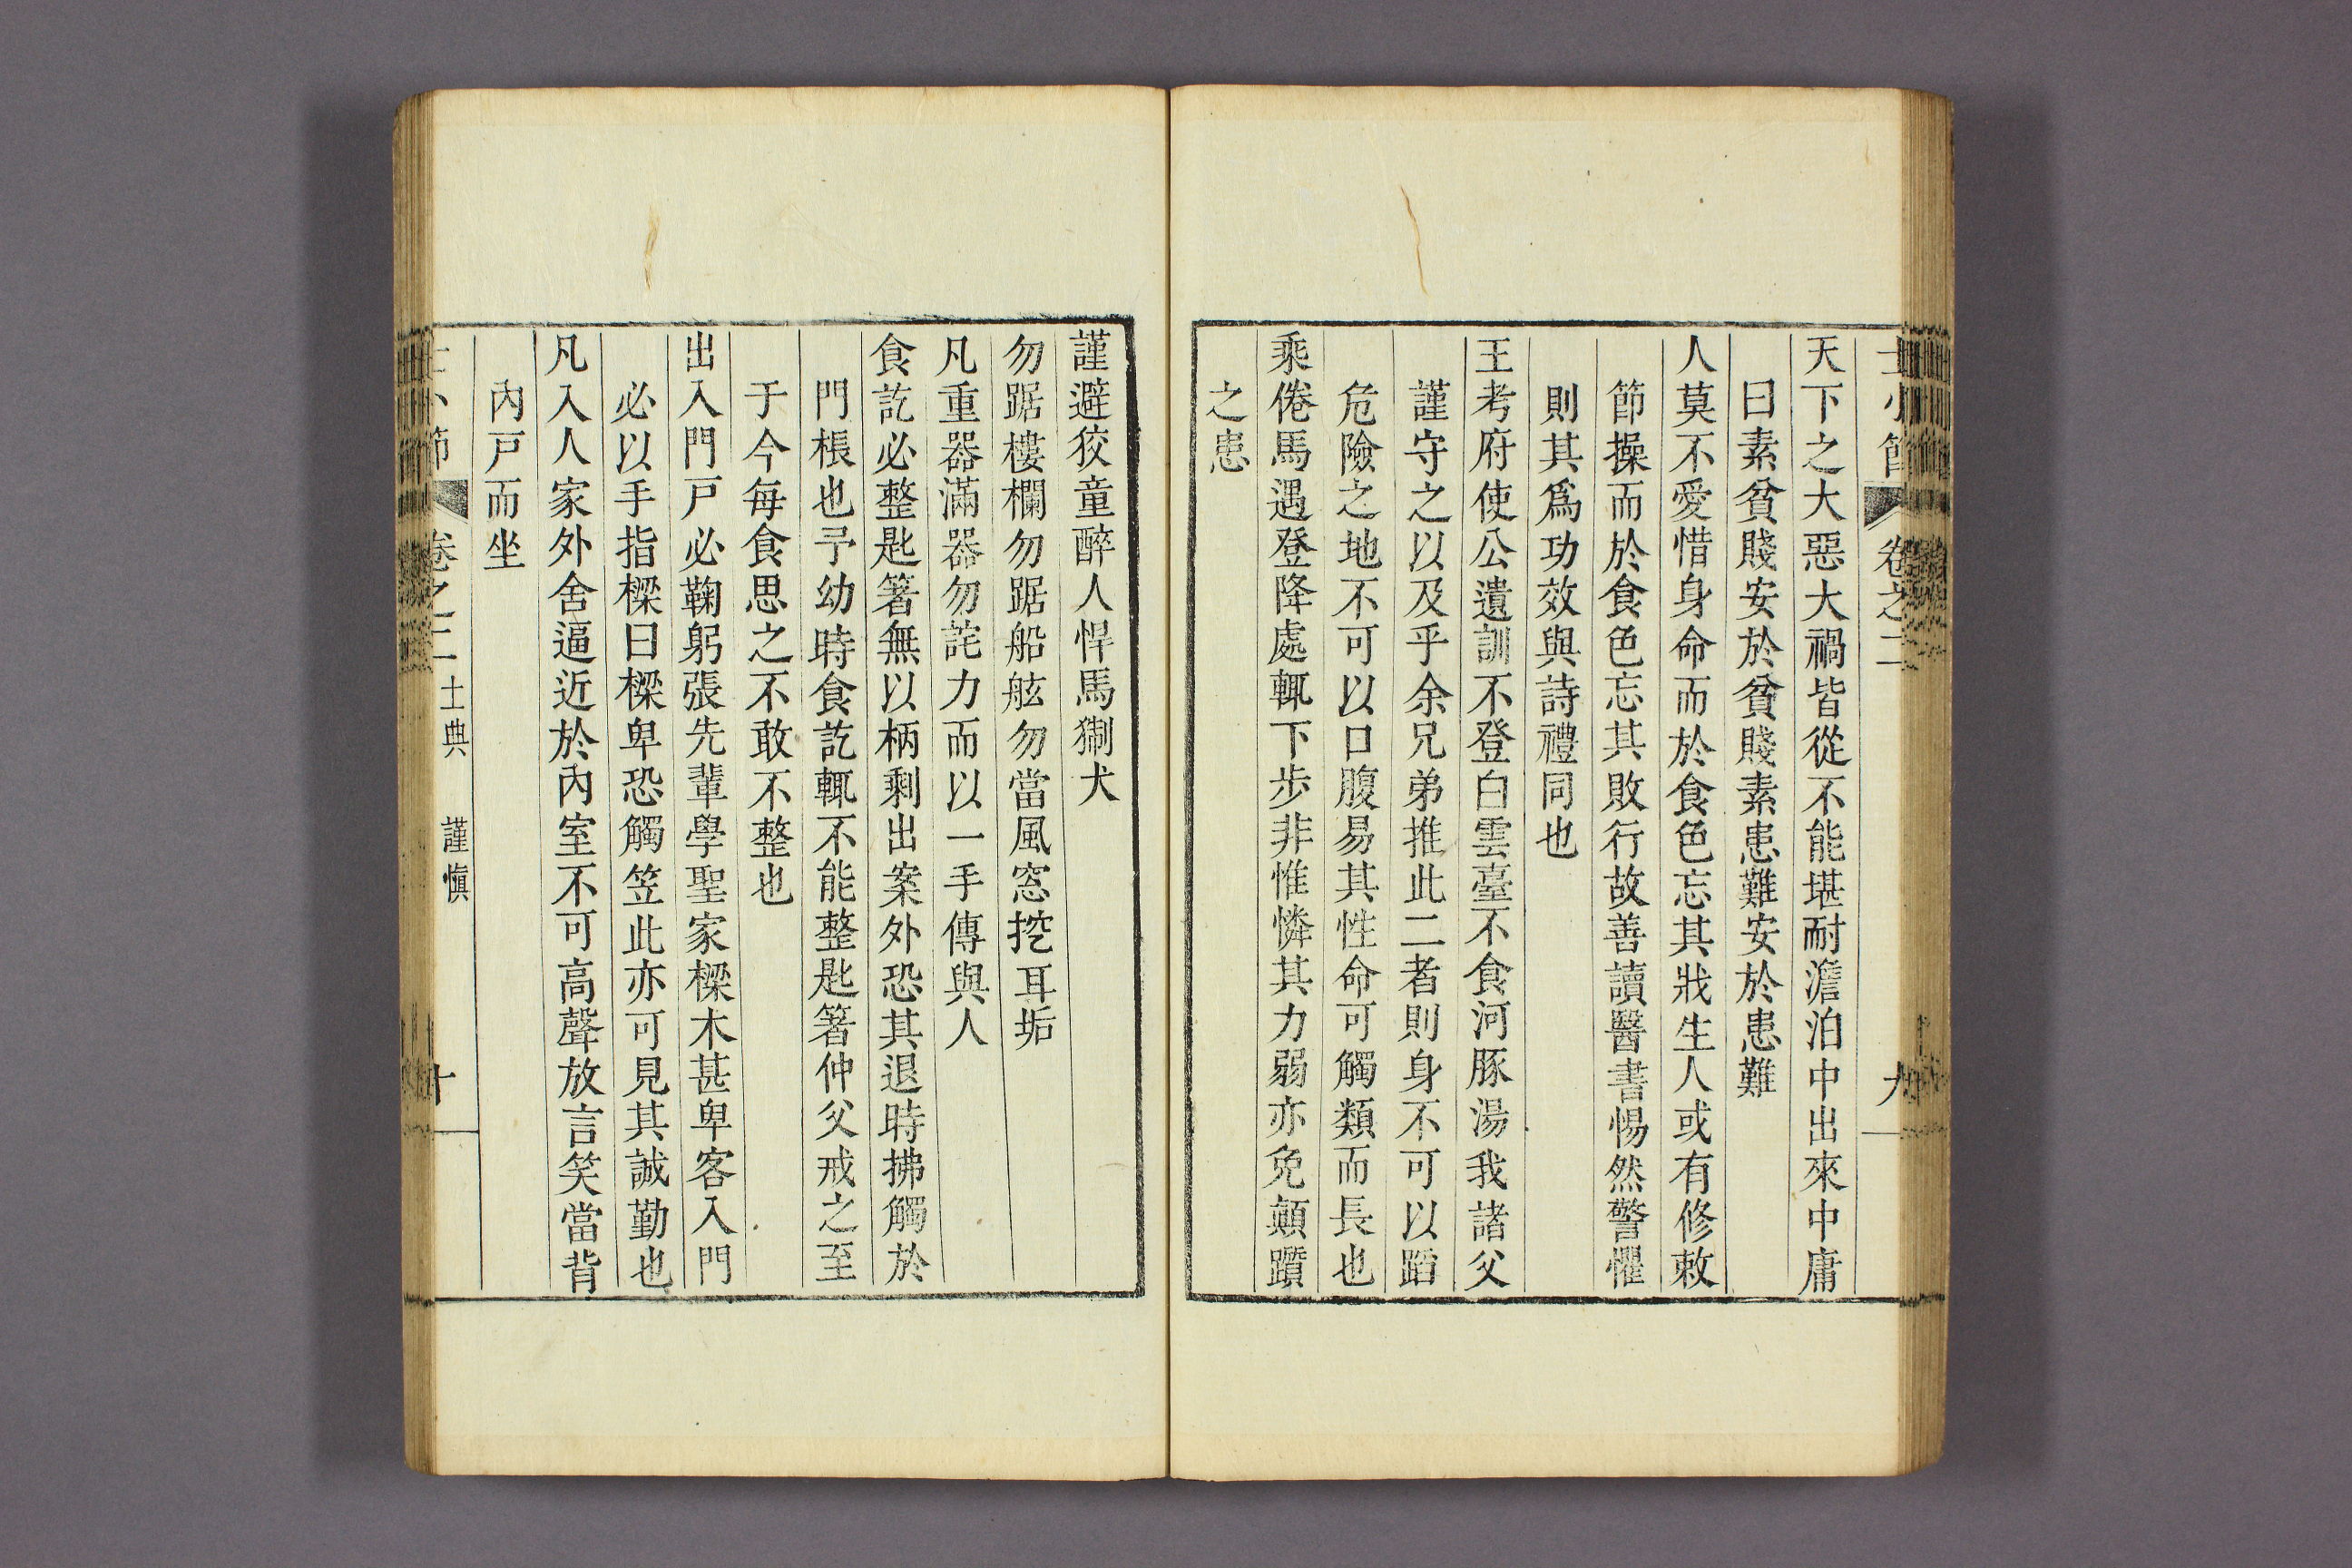 士小節 卷之二 九
天下之大惡大禍皆從不能堪耐澹泊中出來中庸
曰素貧賤安於貧賤素患難安於患難
人莫不愛惜身命而於食色忘其戕生人或有修敕
節操而於食色忘其敗行故善讀醫書惕然警懼
則其爲功效與詩禮同也
王考府使公遺訓不登白雲臺不食河豚湯我諸父
謹守之以及乎余兄弟推此二者則身不可以蹈
危險之地不可以口腹易其性命可觸類而長也
乘倦馬遇登降處輒下步非惟憐其力弱亦免顚躓
之患
謹避狡童醉人悍馬猘犬
勿踞樓欄勿踞船舷勿當風窓挖耳垢
凡重器滿器勿詫力而以一手傳與人
食訖必整匙箸無以柄剩出案外恐其退時拂觸於
門棖也予幼時食訖輒不能整匙箸仲父戒之至
于今每食思之不敢不整也
出入門戶必鞠躬張先輩學聖家樑木甚卑客入門
必以手指樑曰樑卑恐觸笠此亦可見其誠勤也
凡入人家外舍逼近於內室不可高聲放言笑當背
內戶而坐
士小節 卷之二 士典 謹愼 十